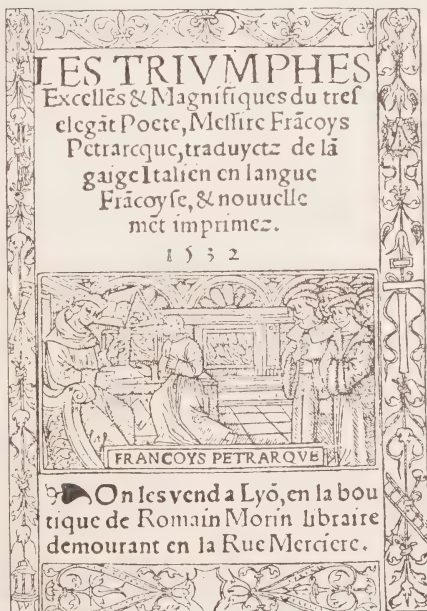 LES TRIVMPHES
Excellẽs & Magnifiques du tres
elegãt Poete, Messire Frãcoys
Petrarcque, traduyctz de lã
gaige Italien en langue
Frãcoyse, & nouuelle
mẽt imprimez.
1532
FRANCOYS PETRARQVE
On les vend a Lyõ, en la bou
tique de Romain Morin libraire
demourant en la Rue Merciere.